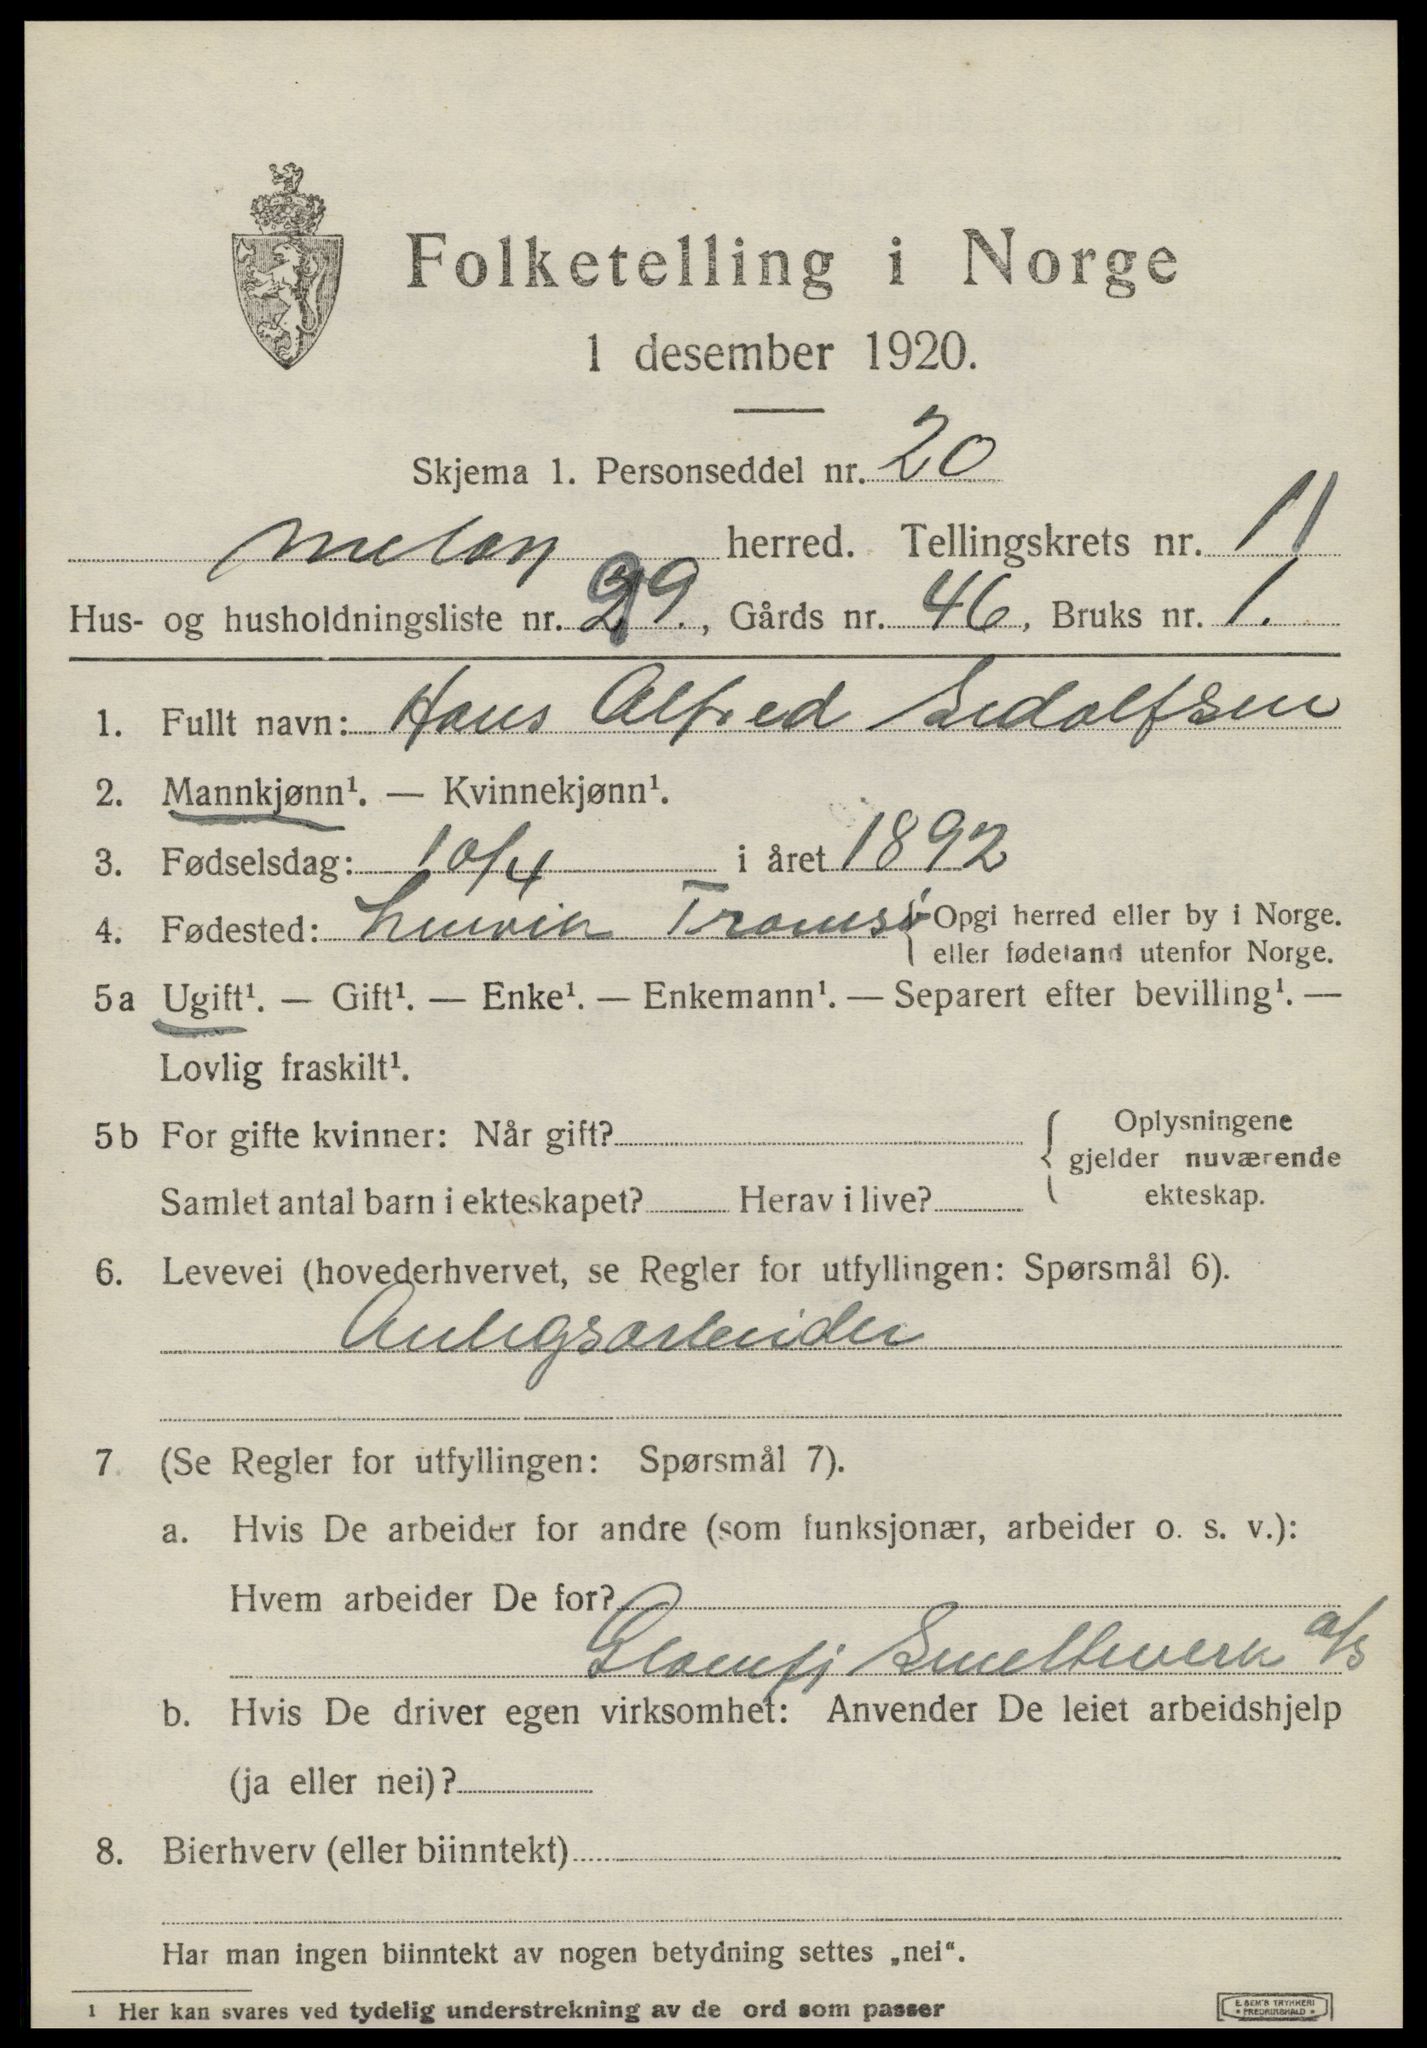 Folketelling i Norge
1 desember 1920.
Skjema 1. Personseddel nr. 20
Meløy herred. Tellingskrets nr. 11
Hus- og husholdningsliste nr. 29., Gårds nr. 46, Bruks nr. 1.
1. Fullt navn: Hans Alfred Edolfsen
2. Mannkjønn¹. — Kvinnekjønn¹.
3. Fødselsdag: 10/4 i året 1892
4. Fødested: Lenvik Tromsø { Opgi herred eller by i Norge.
eller fødeland utenfor Norge.
5a Ugift¹. — Gift¹. — Enke¹. — Enkemann¹. — Separert efter bevilling¹. —
Lovlig fraskilt¹.
5b For gifte kvinner: Når gift? { Oplysningene
gjelder nuværende
Samlet antal barn i ekteskapet? Herav i live? ekteskap.
6. Levevei (hovederhvervet, se Regler for utfyllingen: Spørsmål 6).
Anlegsarbeider
7. (Se Regler for utfyllingen: Spørsmål 7).
a. Hvis De arbeider for andre (som funksjonær, arbeider o. s. v.):
Hvem arbeider De for?
Glomfj Smelteverk a/s
b. Hvis De driver egen virksomhet: Anvender De leiet arbeidshjelp
(ja eller nei)?
8. Bierhverv (eller biinntekt)
Har man ingen biinntekt av nogen betydning settes „nei“.
1 Her kan svares ved tydelig understrekning av de ord som passer
E. SEM'S TRYKKERI
FREDRIKSHALD